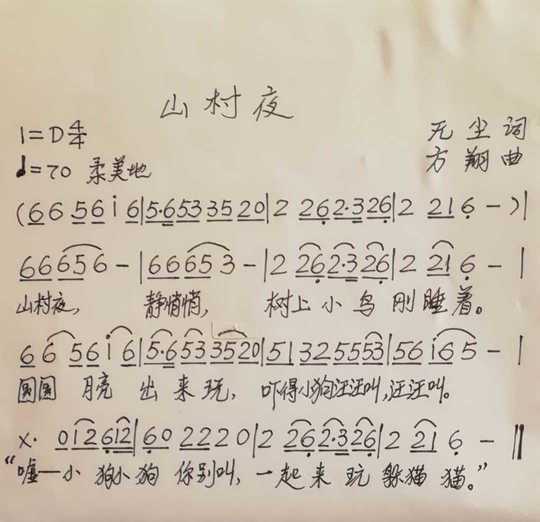 山村夜
1=D 4/4
无尘词
♩=70 柔美地
方翔曲
(6 6 5 6 i 6|5·6 5 3 3 5 2 0|2 2 6 2·3 2 6|2 2 1 6 -)|
6 6 6 5 6 -|6 6 6 5 3 -|2 2 6 2·3 2 6|2 2 1 6 -|
山村夜, 静悄悄, 树上小鸟刚睡着。
6 6 5 6 i 6|5·6 5 3 3 5 2 0|5 1 3 2 5 5 5 3|5 6 i 6 5 -|
圆圆月亮出来玩, 吓得小狗汪汪叫,汪汪叫。
X· 0 1 2 6 1 2|6 0 2 2 2 0|2 2 6 2·3 2 6|2 2 1 6 -‖
“嘘—小狗小狗你别叫, 一起来玩躲猫猫。”